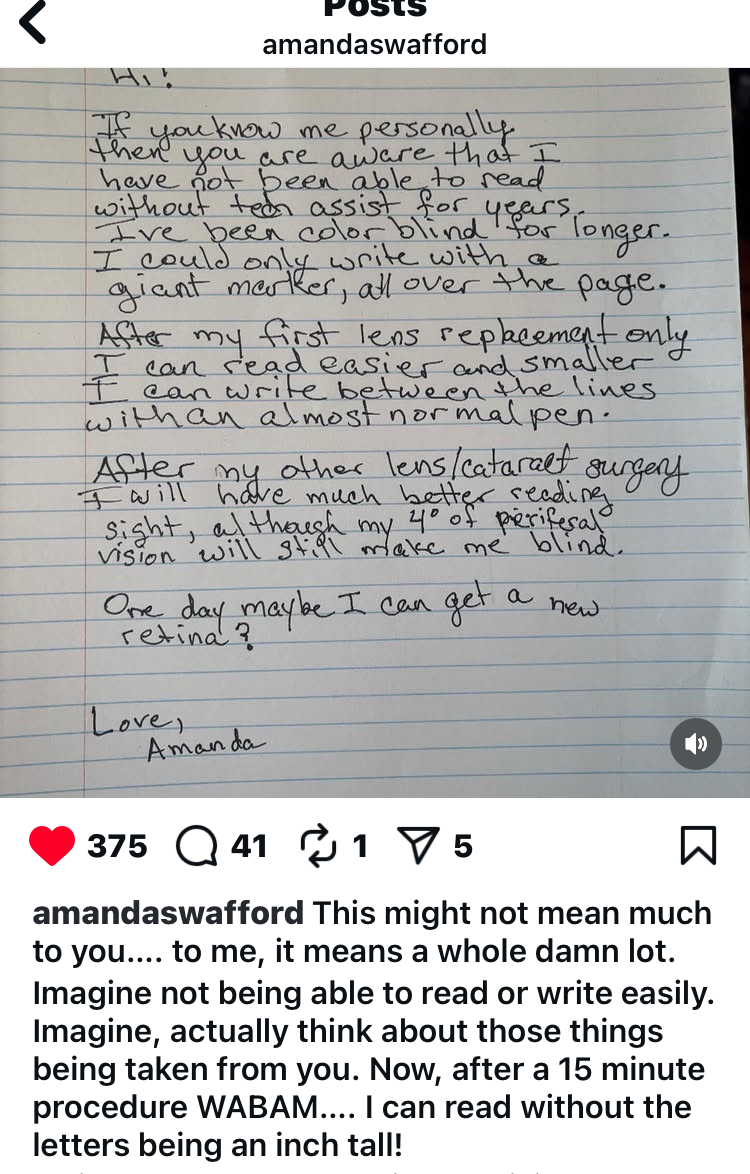 Posts
amandaswafford
Hi!
If you know me personally
then you are aware that I
have not been able to read
without tech assist for years.
I've been color blind for longer.
I could only write with a
giant marker, all over the page.
After my first lens replacement only
I can read easier and smaller
I can write between the lines
with an almost normal pen.
After my other lens/cataract surgery
I will have much better reading
sight, although my 4° of periferal
vision will still make me blind.
One day maybe I can get a new
retina?
Love,
Amanda
375 41 1 5
amandaswafford This might not mean much
to you.... to me, it means a whole damn lot.
Imagine not being able to read or write easily.
Imagine, actually think about those things
being taken from you. Now, after a 15 minute
procedure WABAM.... I can read without the
letters being an inch tall!